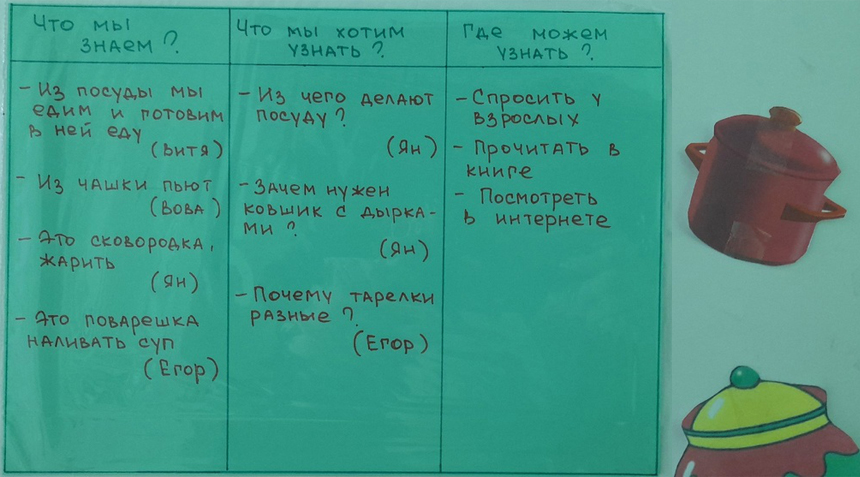 Что мы
знаем?
- Из посуды мы
едим и готовим
в ней еду
(Витя)
- Из чашки пьют
(Вова)
- Это сковородка,
жарить
(Ян)
- Это поварешка
наливать суп
(Егор)
Что мы хотим
узнать?
- Из чего делают
посуду?
(Ян)
- Зачем нужен
ковшик с дырка-
ми?
(Ян)
- Почему тарелки
разные?
(Егор)
Где можем
узнать?
- Спросить у
взрослых
- Прочитать в
книге
- Посмотреть
в интернете